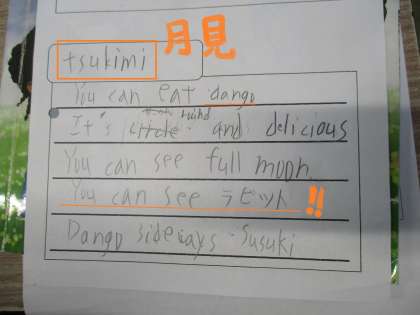 tsukimi 月見
You can eat dango
It's circle and delicious
You can see full moon
You can see ラビット!!
Dango sideways · Susuki